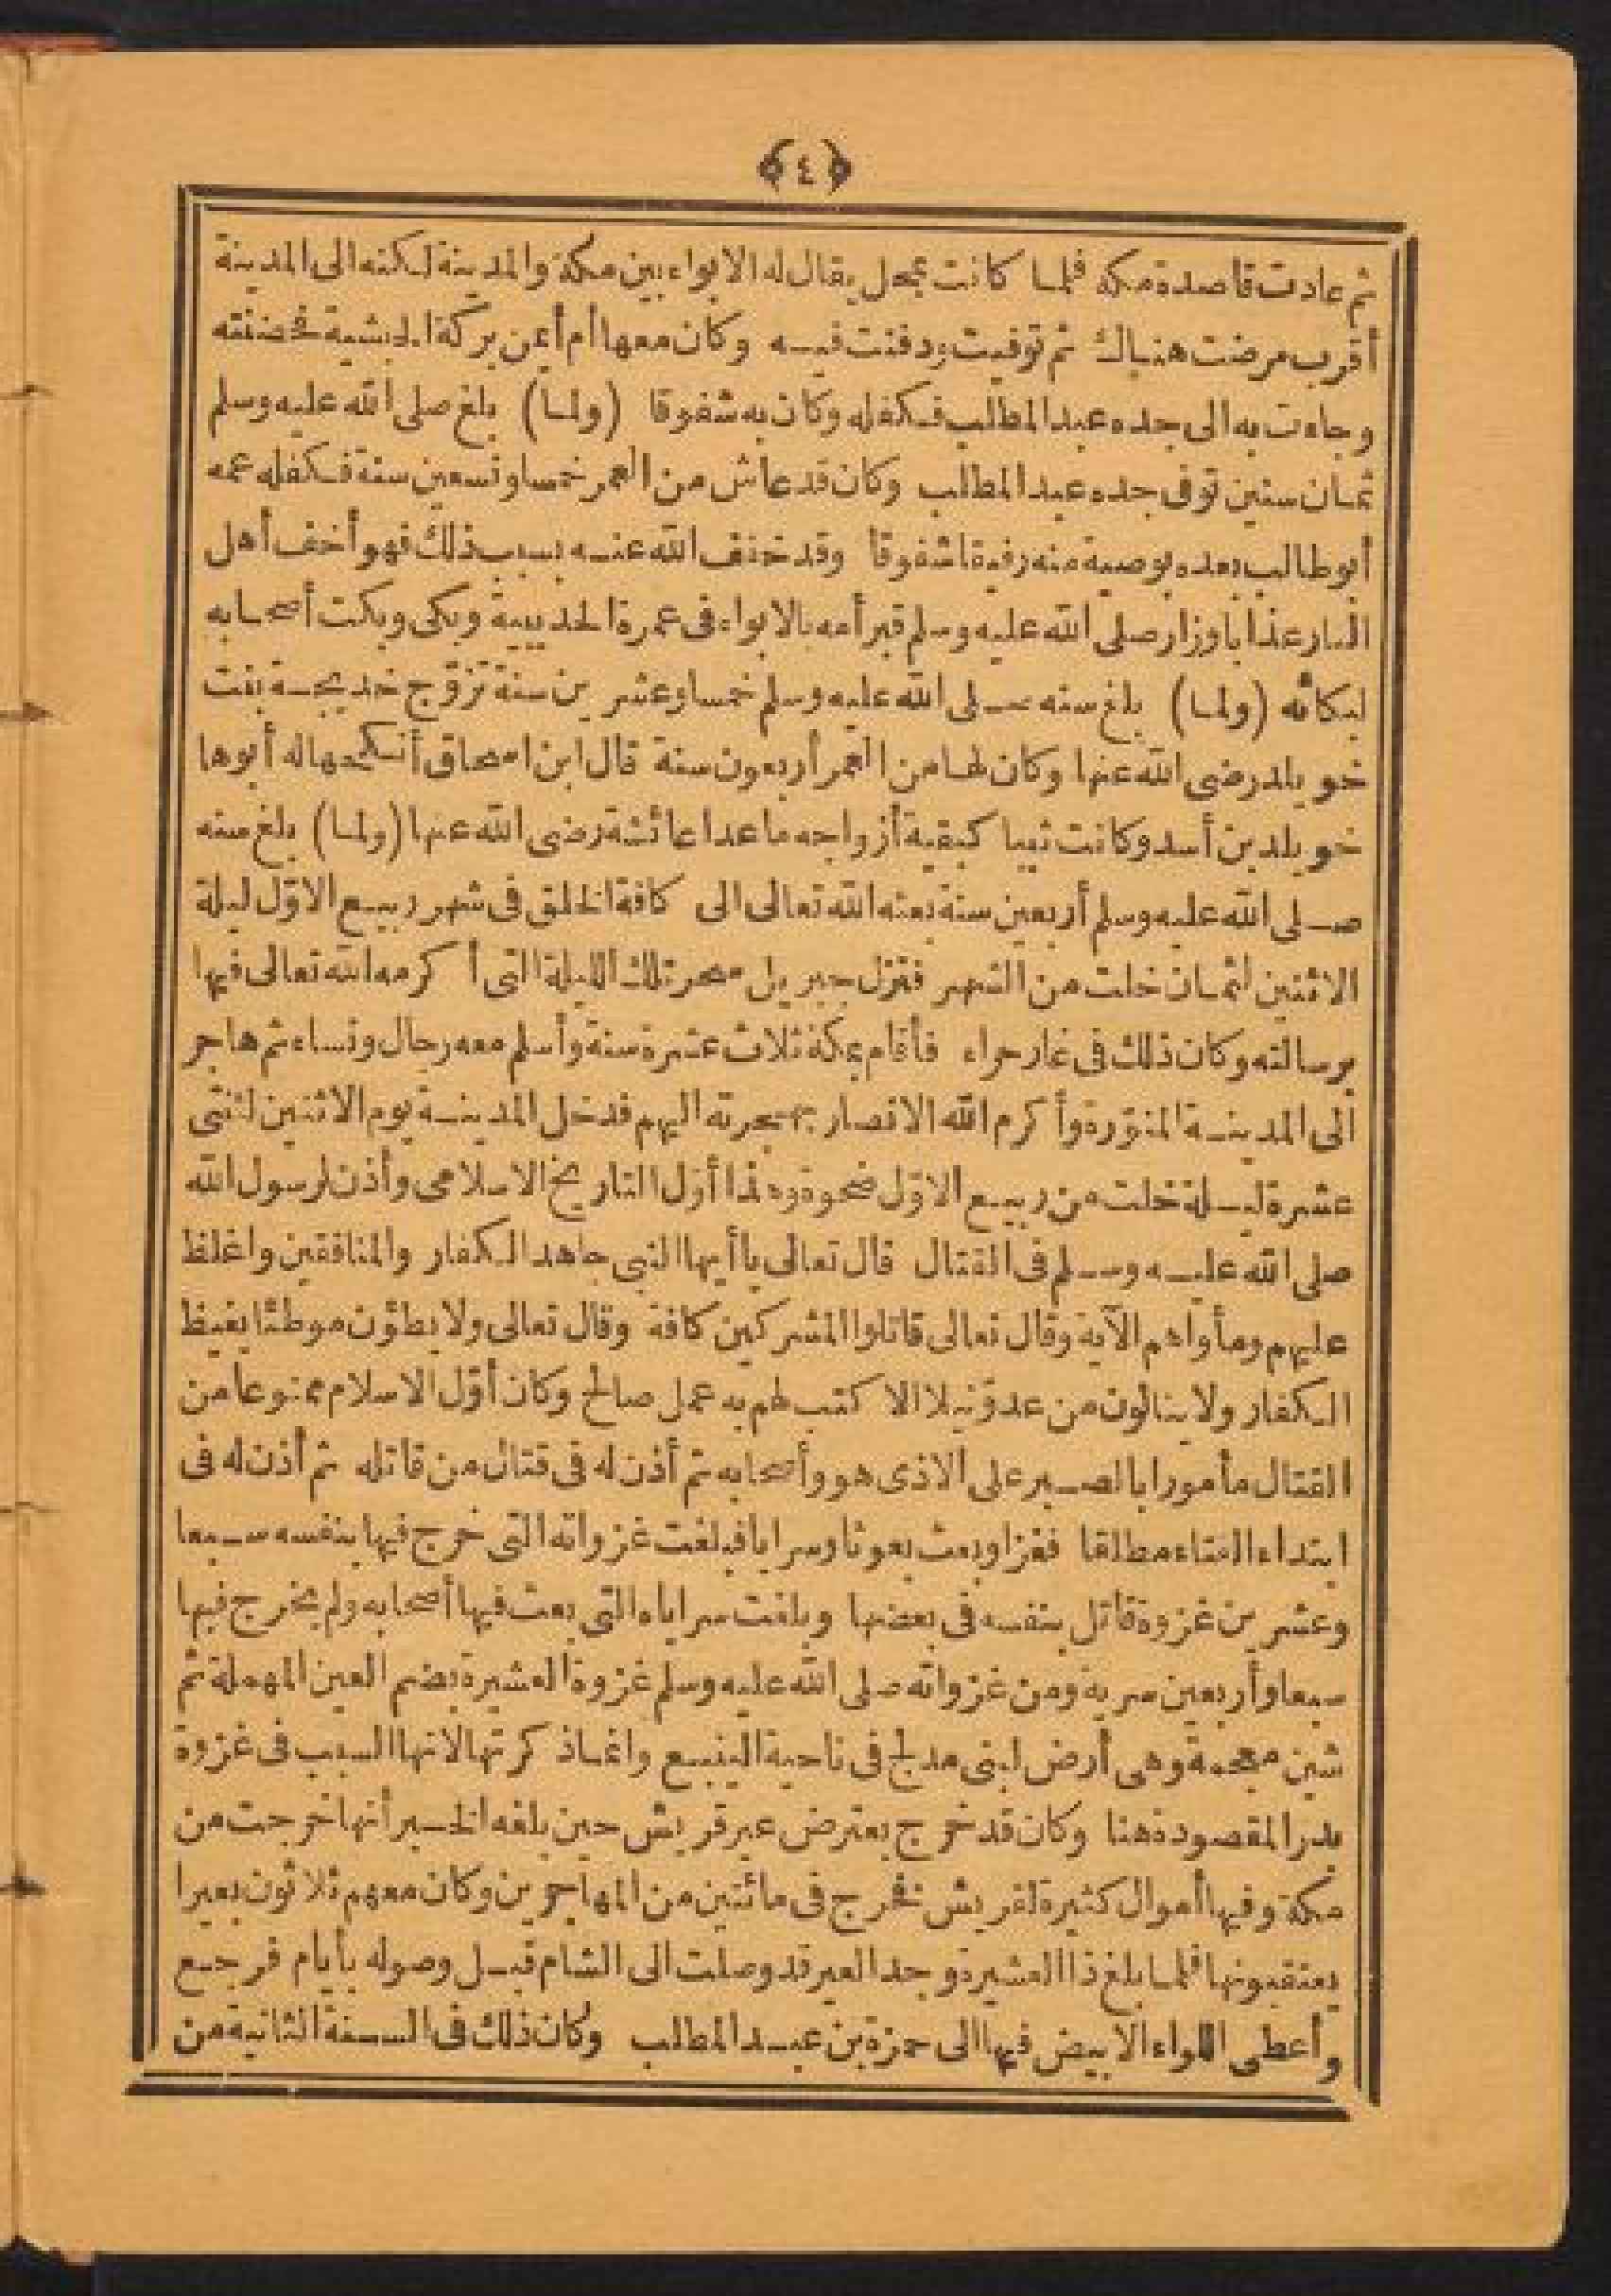 ﴿٤﴾
ثم عادت قاصدة مكة فلما كانت بمحل يقال له الابواء بين مكة والمدينة لكنه الى المدينة
أقرب مرضت هناك ثم توفيت ودفنت فيه وكان معها أم أيمن بركة الحبشية فحضنته
وجاءت به الى جده عبد المطلب فكفله وكان به شفوقا (ولما) بلغ صلى الله عليه وسلم
ثمان سنين توفى جده عبد المطلب وكان قد عاش من العمر خمسا وتسعين سنة فكفله عمه
أبو طالب بعده بوصية منه رفيقا شفوقا وقد خفف الله عنه بسبب ذلك فهو أخف أهل
النار عذابا وزار صلى الله عليه وسلم قبر أمه بالابواء فى عمرة الحديبية وبكى وبكت أصحابه
لبكائه (ولما) بلغ سنه صلى الله عليه وسلم خمسا وعشرين سنة تزوّج خديجة بنت
خويلد رضى الله عنها وكان لها من العمر أربعون سنة قال ابن اسحاق أنكحها له أبوها
خويلد بن أسد وكانت ثيبا كبقية أزواجه ماعدا عائشة رضى الله عنها (ولما) بلغ سنه
صلى الله عليه وسلم أربعين سنة بعثه الله تعالى الى كافة الخلق فى شهر ربيع الاوّل ليلة
الاثنين لثمان خلت من الشهر فنزل جبريل سحر تلك الليلة التى أكرمه الله تعالى فيها
برسالته وكان ذلك فى غار حراء فأقام بمكة ثلاث عشرة سنة وأسلم معه رجال ونساء ثم هاجر
الى المدينة المنوّرة وأكرم الله الانصار بهجرته اليهم فدخل المدينة يوم الاثنين لثنتى
عشرة ليلة خلت من ربيع الاوّل ضحوة وهذا أول التاريخ الاسلامى وأذن لرسول الله
صلى الله عليه وسلم فى القتال قال تعالى ياأيها النبى جاهد الكفار والمنافقين واغلظ
عليهم ومأواهم الآية وقال تعالى قاتلوا المشركين كافة وقال تعالى ولا يطؤن موطئا يغيظ
الكفار ولا ينالون من عدوّ نيلا الا كتب لهم به عمل صالح وكان أوّل الاسلام ممنوعا من
القتال مأمورا بالصبر على الاذى هو وأصحابه ثم أذن له فى قتال من قاتله ثم أذن له فى
ابتداء القتاء مطلقا فغزا وبعث بعوثا وسرايا فبلغت غزواته التى خرج فيها بنفسه سبعا
وعشرين غزوة قاتل بنفسه فى بعضها وبلغت سراياه التى بعث فيها أصحابه ولم يخرج فيها
سبعا وأربعين سرية ومن غزواته صلى الله عليه وسلم غزوة العشيرة بضم العين المهملة ثم
شين معجمة وهى أرض لبنى مدلج فى ناحية الينبع وانما ذكرتها لانها السبب فى غزوة
بدر المقصودة هنا وكان قد خرج يعترض عير قريش حين بلغه الخبر أنها خرجت من
مكة وفيها أموال كثيرة لقريش فخرج فى مائتين من المهاجرين وكان معهم ثلاثون بعيرا
يعتقبونها فلما بلغ ذا العشيرة وجد العير قد وصلت الى الشام قبل وصوله بأيام فرجع
وأعطى اللواء الابيض فيها الى حمزة بن عبد المطلب وكان ذلك فى السنة الثانية من